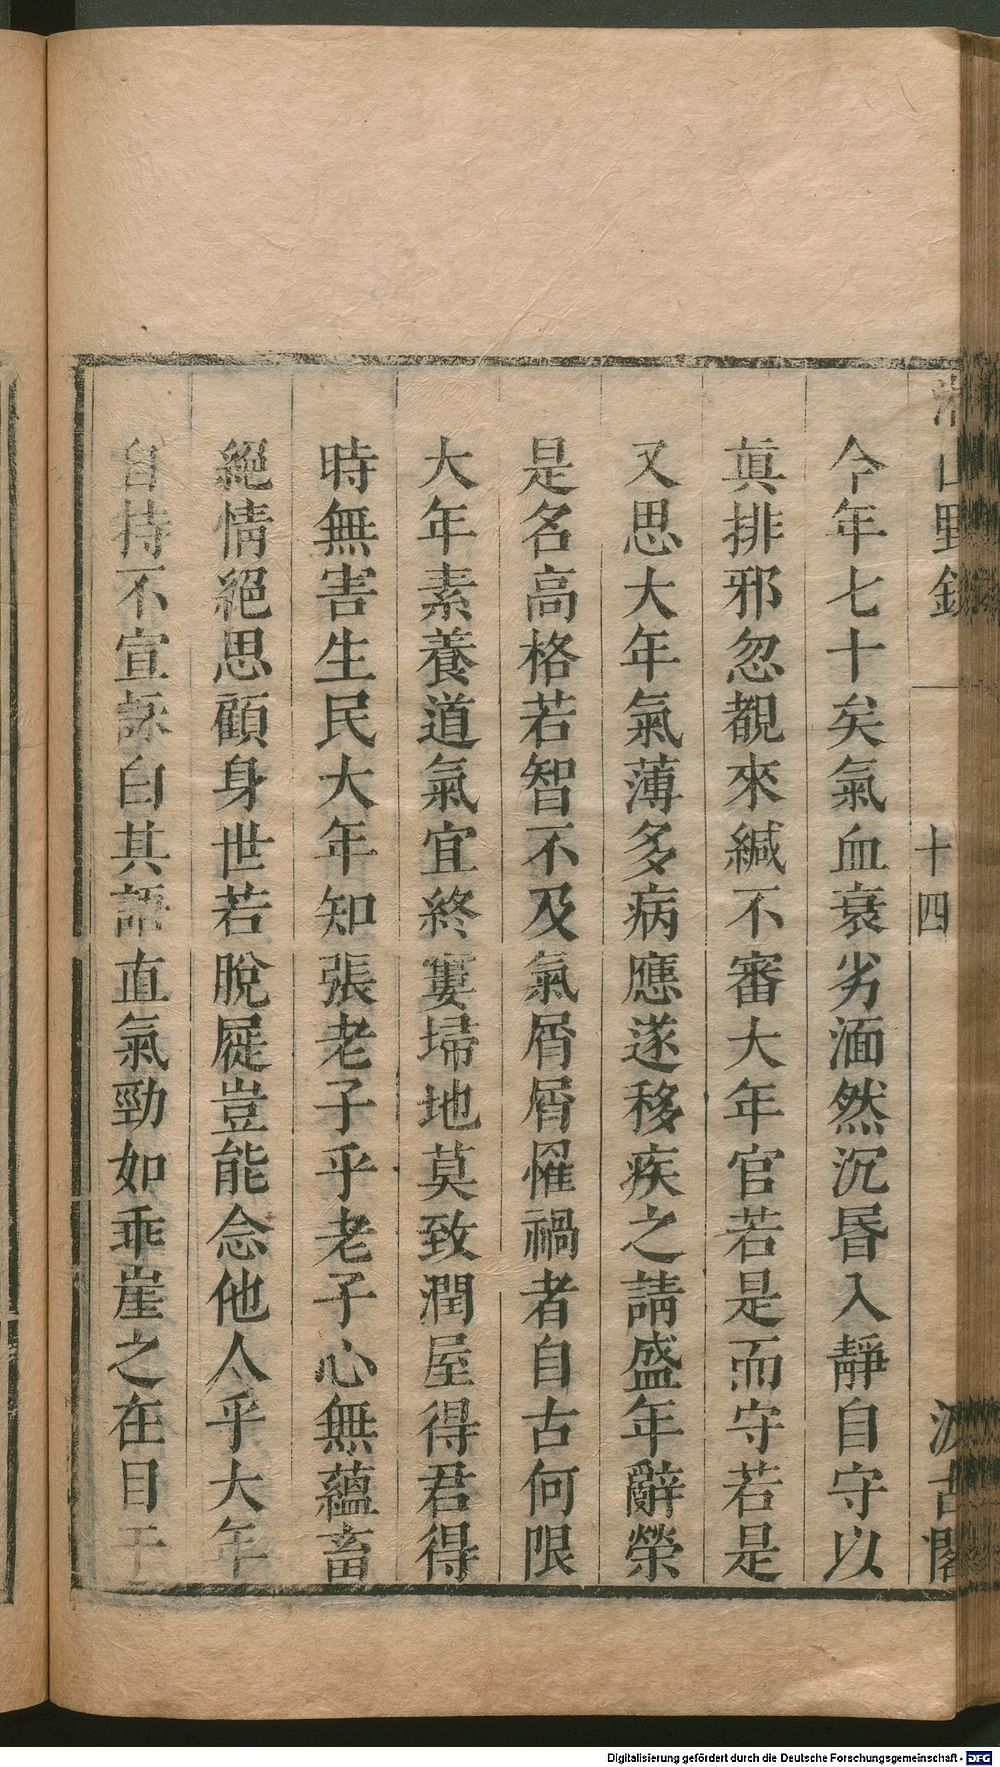 湘山野錄
十四
汲古閣
今年七十矣氣血衰劣湎然沉昬入靜自守以
眞排邪忽覩來緘不審大年官若是而守若是
又思大年氣薄多病應遂移疾之請盛年辭榮
是名高格若智不及氣屑屑罹禍者自古何限
大年素養道氣宜終窶埽地莫致潤屋得君得
時無害生民大年知張老子乎老子心無蘊畜
絕情絕思顧身世若脫屣豈能念他人乎大年
自持不宣詠白其語直氣勁如乖崖之在目于
Digitalisierung gefördert durch die Deutsche Forschungsgemeinschaft - DFG